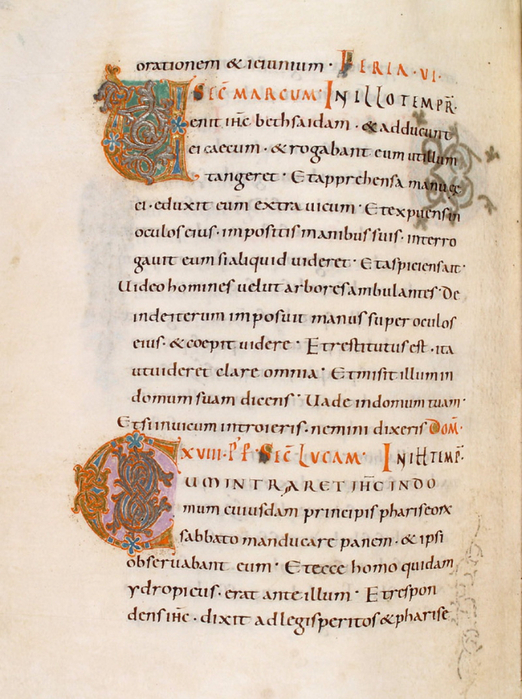 orationem & ieiunium · FERIA · VI ·
SEC̄ MARCUM · IN ILLO TEMPR̄ ·
Uenit ih̄c bethsaidam · & adducunt
ei caecum · & rogabant eum ut illum
tangeret · Et apprehensa manu cę
ci · eduxit eum extra uicum · Et expuens in
oculos eius · impositis manibus suis · interro
gauit eum si aliquid uideret · Et aspiciens ait ·
Uideo homines uelut arbores ambulantes · De
inde iterum imposuit manus super oculos
eius · & coepit uidere · Et restitutus est · ita
ut uideret clare omnia · Et misit illum in
domum suam dicens · Uade in domum tuam ·
Et si in uicum introieris · nemini dixeris DOM̄ ·
XVIII · P̄ · P̄ · SEC̄ LUCAM · IN ILL TEMP̄R ·
CUM INTRARET IH̄C IN DO
mum cuiusdam principis phariseorum
sabbato manducare panem · & ipsi
obseruabant eum · Et ecce homo quidam
ydropicus · erat ante illum · Et respon
dens ih̄c · dixit ad legis peritos & pharise